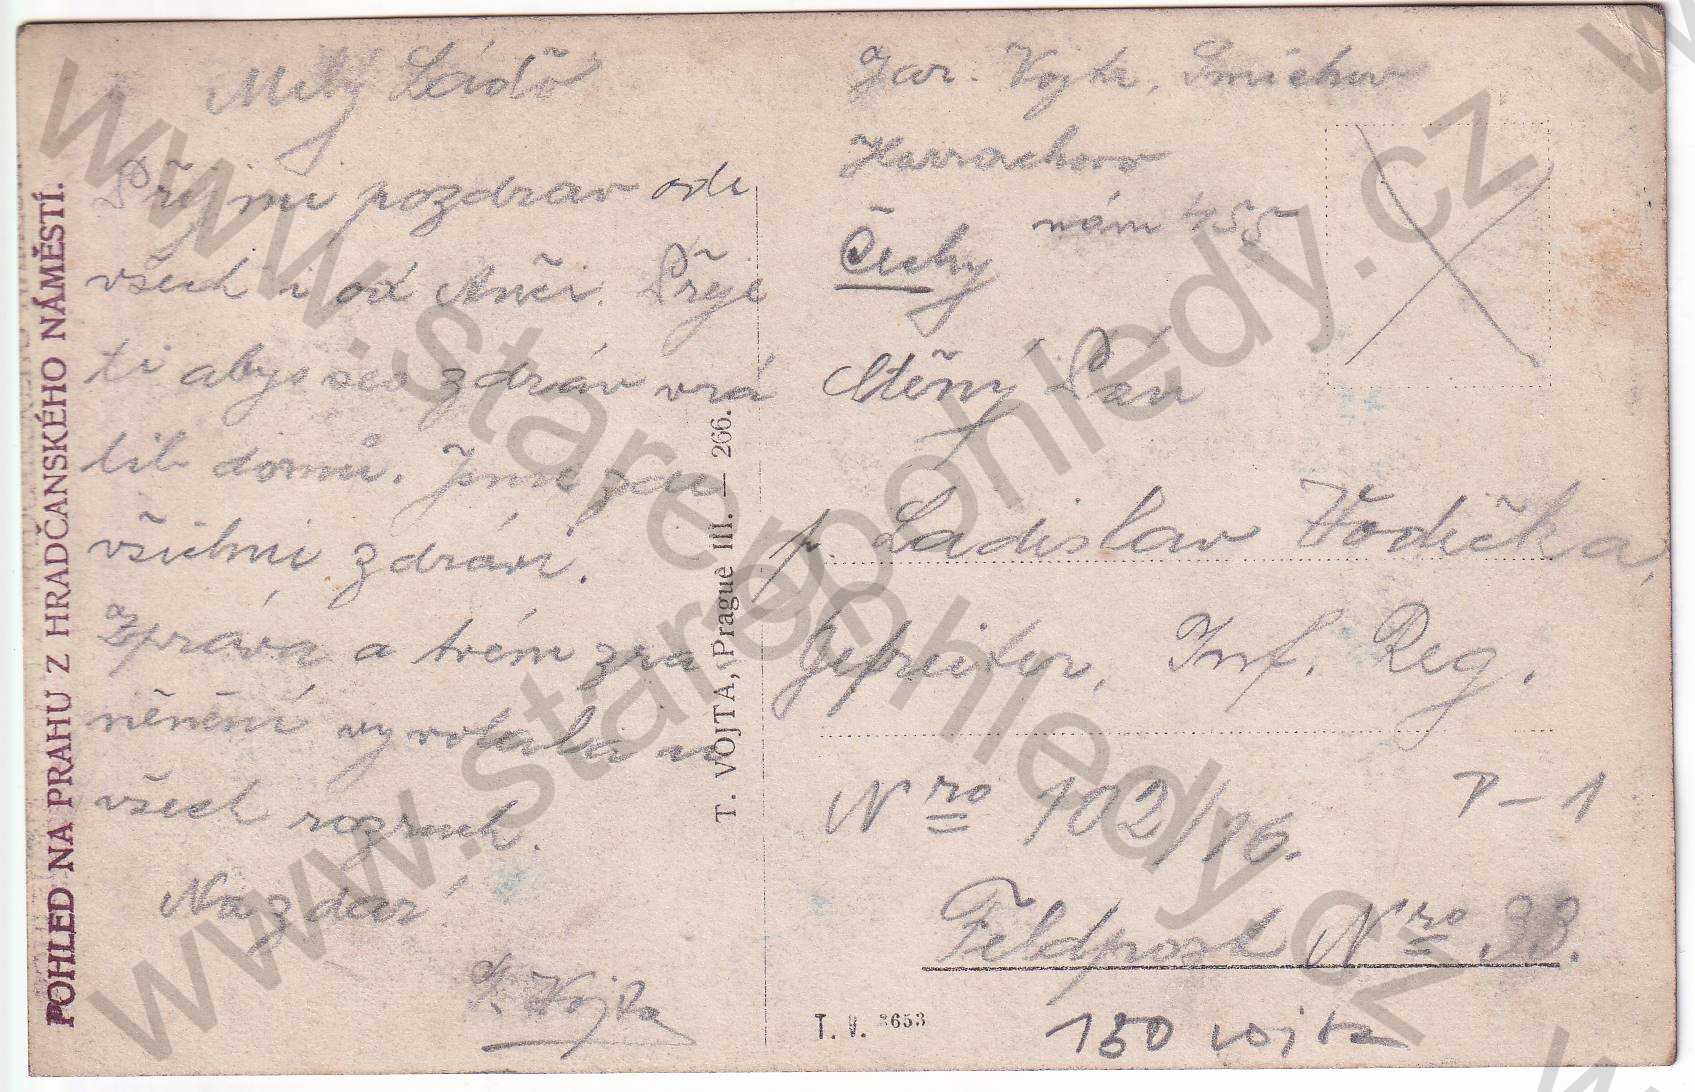 POHLED NA PRAHU Z HRADČANSKÉHO NÁMĚSTÍ.
Milý Láďo
Přijmi pozdrav ode
všech i od Anči. Přeje
ti abys se zdráv vrá
til domů. Jsme zde
všichni zdrávi.
Zpráva o tvém zra-
nění vyvolala u
všech rozruch.
Nazdar
J. Vojta
T. VOJTA, Prague III. — 266.
Jar. Vojta, Smíchov
Harrachovo
nám 455
Čechy
Ctěný Pán
p. Ladislav Vodička,
Gefreiter, Inf. Reg.
Nro 102/16.
P-1
Feldpost Nro 33.
T. V. 3653
150 vojta
www.starepohledy.cz
www.starepohledy.cz